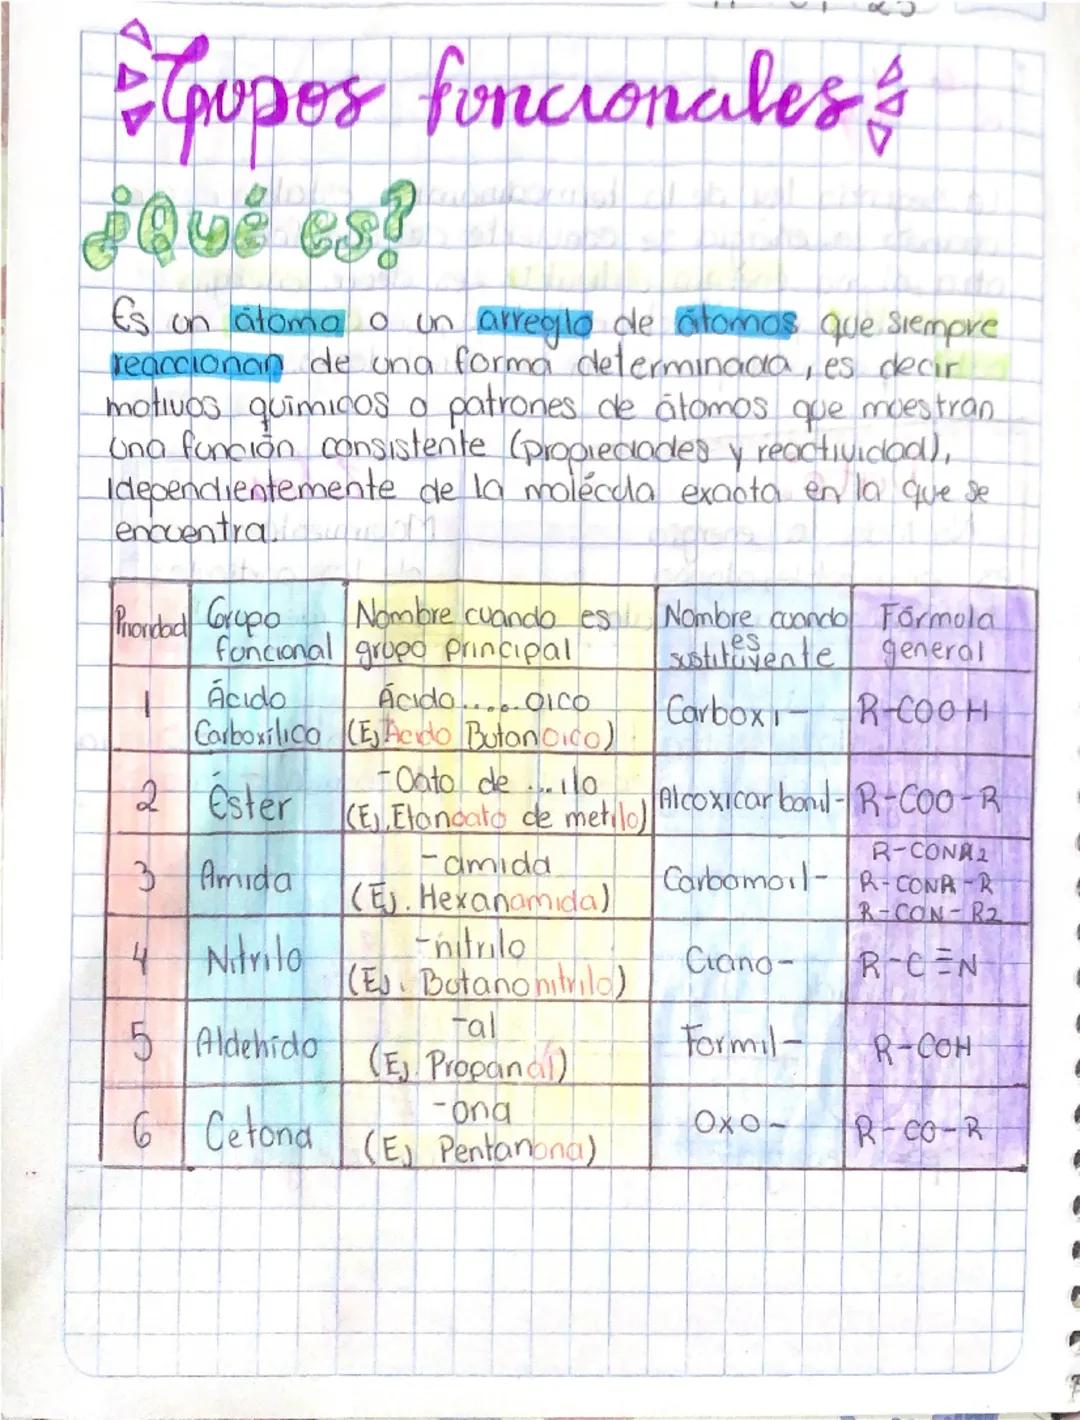 Grupos funcionales
¿Qué es?
Es un átomo o un arreglo de átomos que siempre
reaccionan de una forma determinada, es decir
motivos químicos o patrones de átomos que muestran
una función consistente (propiedades y reactividad),
Idependientemente de la molécula exacta en la que se
encuentra.
Prioridad Grupo funcional Nombre cuando es grupo principal Nombre cuando es sustituyente Fórmula general
1 Ácido Carboxílico Ácido.....oico (Ej Ácido Butanoico) Carboxi- R-COOH
2 Éster -Oato de ...ilo (Ej. Etanoato de metilo) Alcoxicarbonil- R-COO-R
3 Amida -amida (Ej. Hexanamida) Carbamoil- R-CONH2 R-CONH-R R-CON-R2
4 Nitrilo -nitrilo (Ej. Butanonitrilo) Ciano- R-C≡N
5 Aldehído -al (Ej. Propanal) Formil- R-COH
6 Cetona -ona (Ej Pentanona) Oxo- R-CO-R